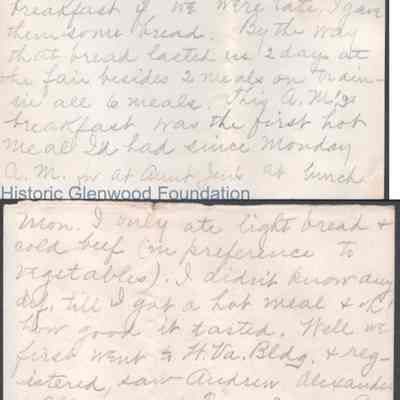 breakfast if we were late. I gave
them some bread. By the way
that bread lasted us 2 days at
the fair besides 2 meals on train-
in all 6 meals. This A.M.'s
breakfast was the first hot
meal I'd had since Monday
A.M. at Aunt at lunch
Historic Glenwood Foundation
Mon. I only ate light bread &
cold beef (in preference to
vegetables). I didn't know any
dif. till I got a hot meal & oh!
how good it tasted. Well we
first went to W.Va. Bldg. & reg-
istered, saw Andrew Alexander